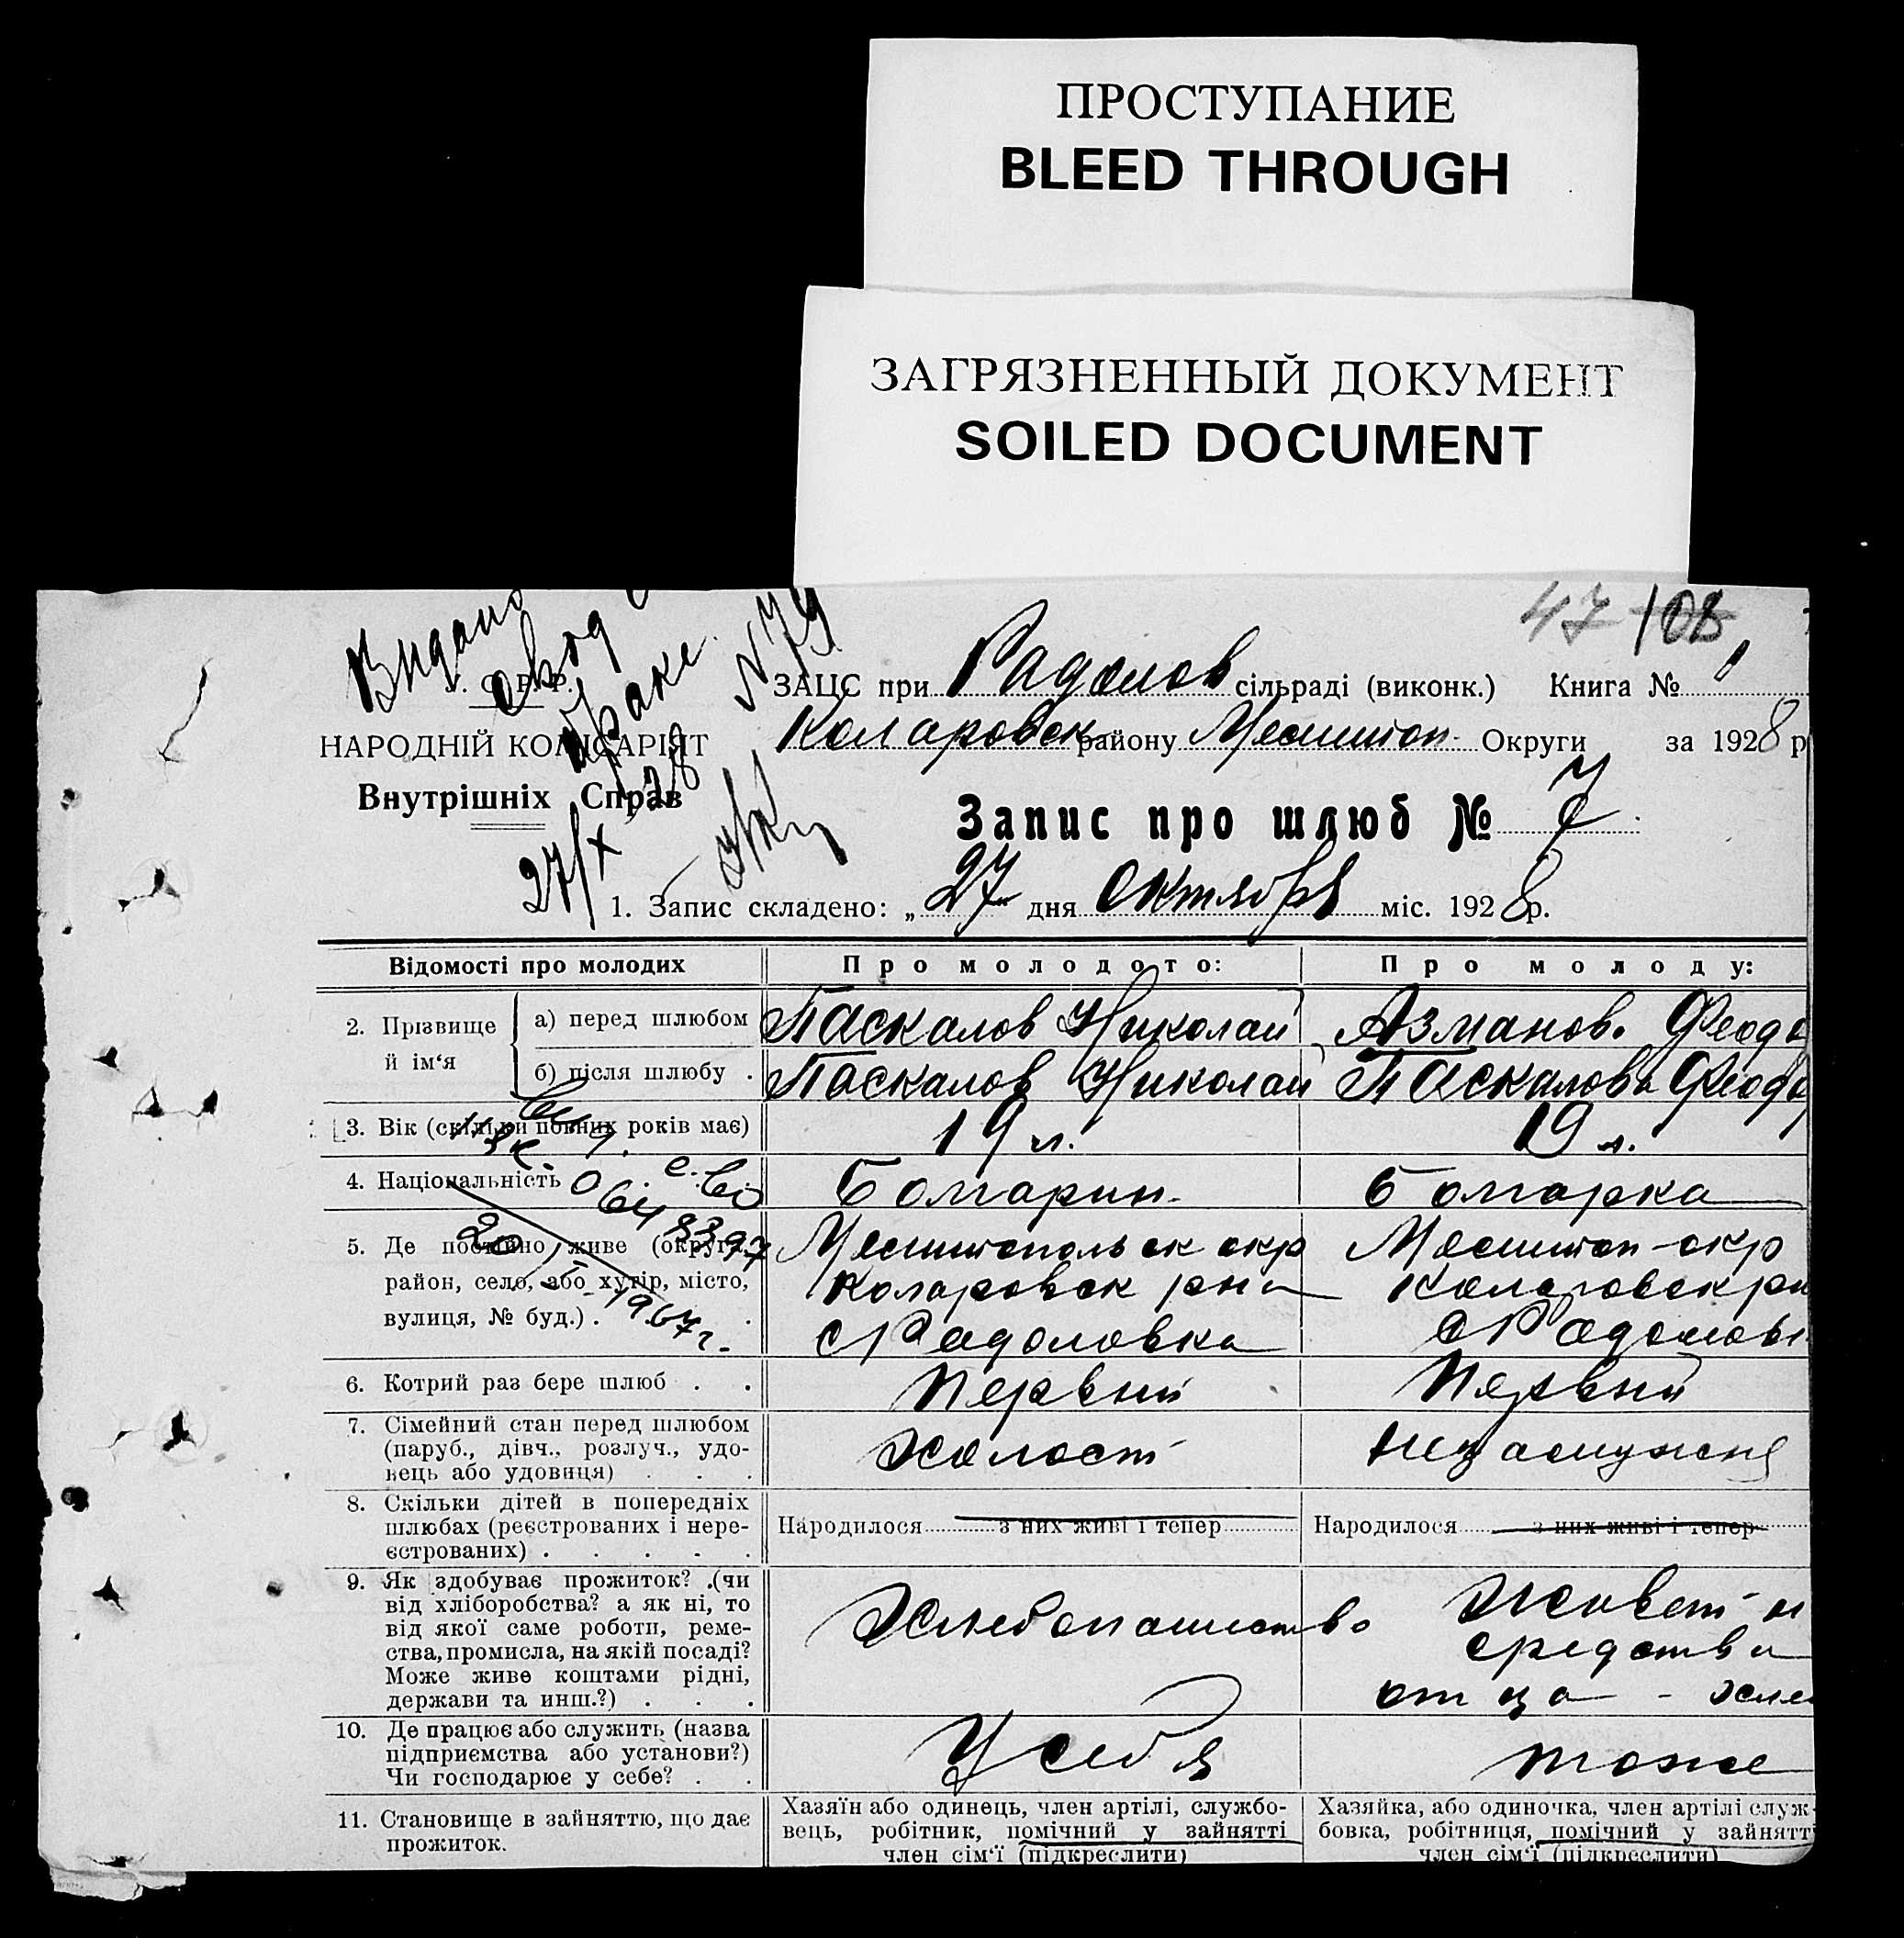 ПРОСТУПАНИЕ
BLEED THROUGH
ЗАГРЯЗНЕННЫЙ ДОКУМЕНТ
SOILED DOCUMENT
47 108
Видано
браке № 79
27/X 28
С. Р. Р.
НАРОДНІЙ КОМІСАРІЯТ
Внутрішніх Справ
ЗАЦС при Радолов сільраді (виконк.) Книга № 1
Коларовск району Мелитоп. Округи за 1928 р
Запис про шлюб № 7
1. Запис складено: „27" дня Октября міс. 1928 р.
Відомості про молодих Про молодого: Про молоду:
2. Прізвище й ім'я
а) перед шлюбом Паскалов Николай Азманова Феодо
б) після шлюбу . Паскалов Николай Паскалова Феодо
3. Вік (скільки повних років має) 19 л. 19 л.
4. Національність Болгарин Болгарка
5. Де постійно живе (округа, Мелитопольск окр Мелитоп-окр
район, село, або хутір, місто, Коларовск рна Коларовск рн
вулиця, № буд.) . с Радоловка с Радоловк
20 1967 г.
6. Котрий раз бере шлюб . . Первый Первый
7. Сімейний стан перед шлюбом
(паруб., дівч., розлуч., удо- Холост Незамужня
вець або удовиця) . . .
8. Скільки дітей в попередніх
шлюбах (реєстрованих і нере- Народилося з них живі і тепер Народилося з них живі і тепер
єстрованих) . . . . .
9. Як здобуває прожиток? (чи
від хліборобства? а як ні, то Живет н
від якої саме роботи, реме- Хлебопашество средства
ства, промисла, на якій посаді?
Може живе коштами рідні, отца - хле
держави та инш.?) . . .
10. Де працює або служить (назва
підприємства або установи?) У себя тоже
Чи господарює у себе? . .
11. Становище в зайняттю, що дає
прожиток.
Хазяїн або одинець, член артілі, службо-
вець, робітник, помічний у зайнятті
член сім'ї (підкреслити)
Хазяйка, або одиночка, член артілі служ-
бовка, робітниця, помічний у зайнятт
член сім'ї (підкреслити)